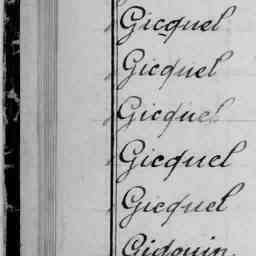 Gicquel
Gicquel
Gicquel
Gicquel
Gicquel
Gidouin